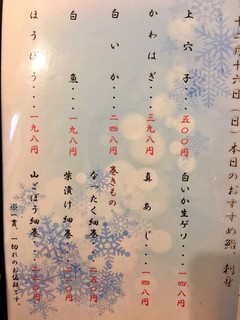 十二月十六日（日）本日のおすすめ鮨、刺身
上穴子・・・・五〇〇円
かわはぎ・・・三九八円
白いか・・・・二四八円
白魚・・・・・一九八円
ほうぼう・・・一九八円
白いか生ゲソ・・一四八円
真あじ・・・・一四八円
巻きもの
なったく細巻・・・二五〇円
柴漬け細巻・・・一八〇円
山ごぼう細巻・・・
※一貫、一切れのお値段です。